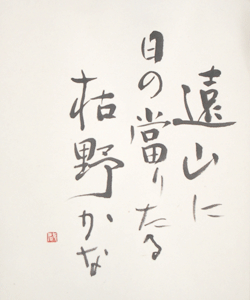 遠山に
日の當りたる
枯野かな